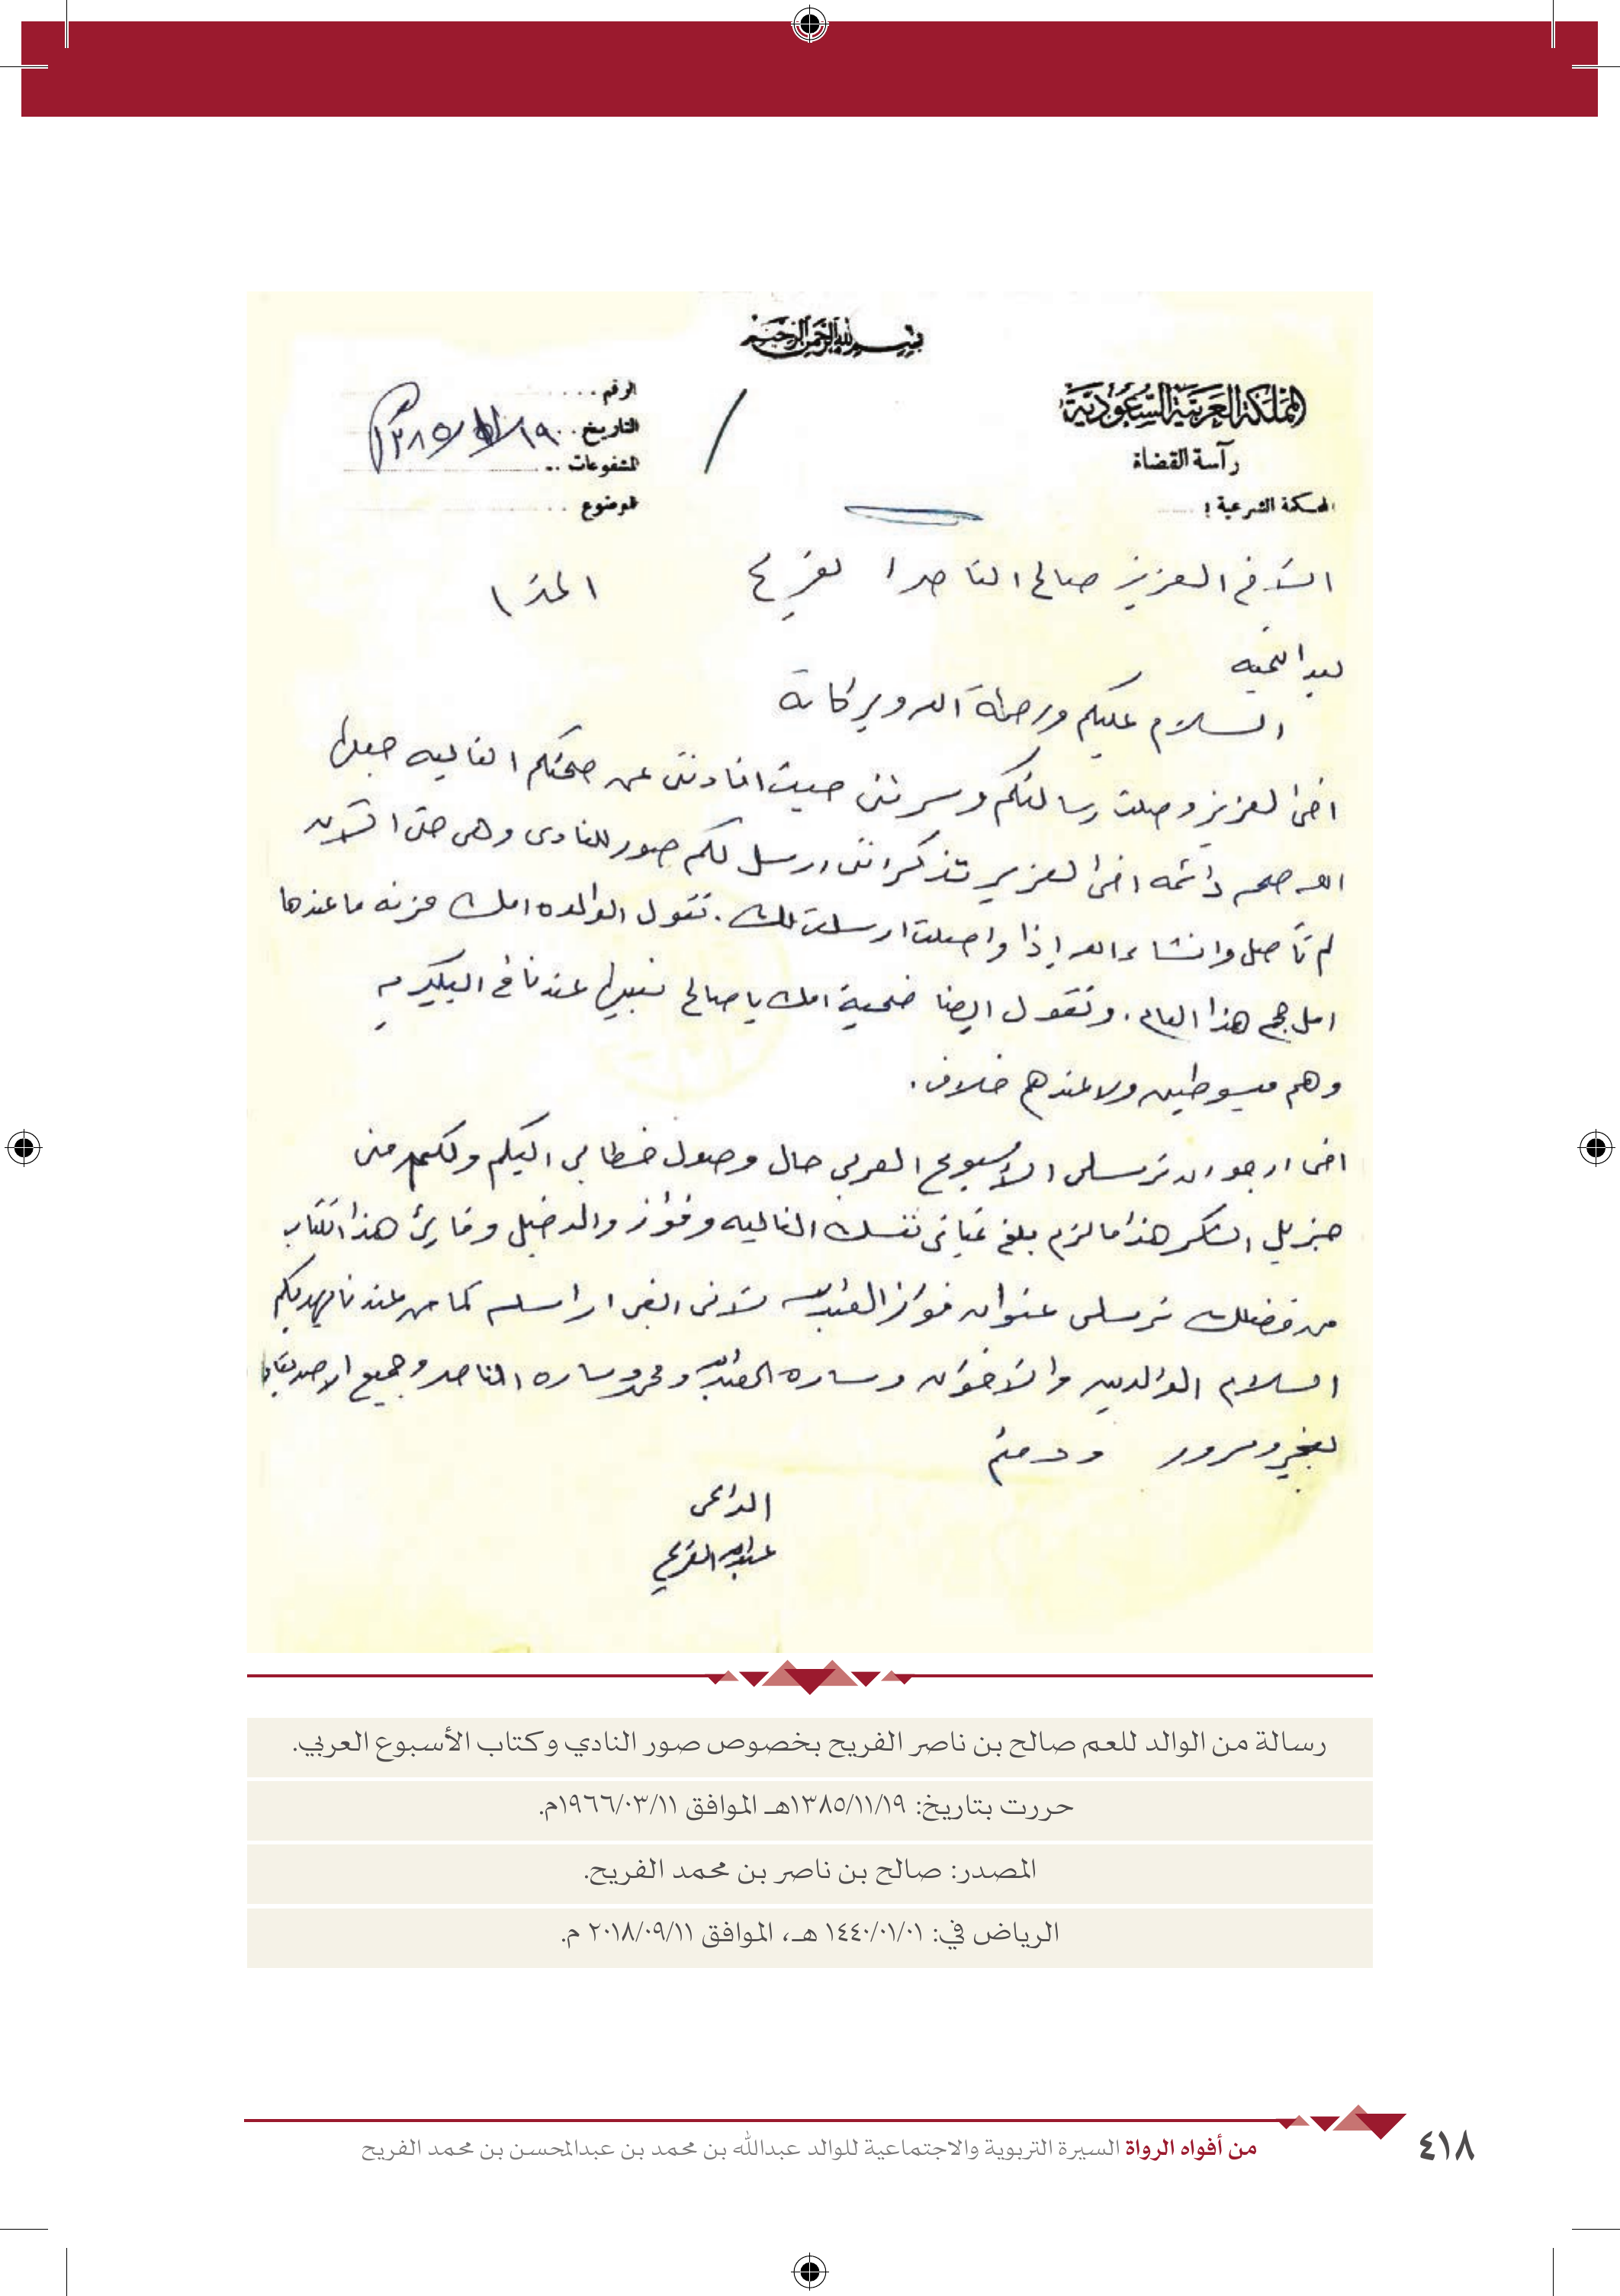 بسم الله الرحمن الرحيم
المملكة العربية السعودية
رآسة القضاة
المحكمة الشرعية :
الرقم
التاريخ ١٩/١١/١٣٨٥
المشفوعات
الموضوع
الأخ العزيز صالح الناصر الفريح المحترم
بعد التحيه
السلام عليكم ورحمة الله وبركاته
اخي العزيز وصلت رسالتكم وسرتني حيث افادتني عن صحتكم الغاليه جعلها
الله صحه دائمه اخي العزيز تذكر انني ارسل لكم صور للنادي وهي حتى الآن
لم تأصل وانشاء الله إذا واصلت ارسلت لك . تقول الوالده امك مزنه ما عندها
امل حج هذا العام . وتقول ايضا ضحية امك يا صالح نبيها عندنا في البكيريه
وهم مبسوطين ولا عندهم خلاف .
اخي ارجو ان ترسلي الأسبوع العربي حال وصول خطابي اليكم ولكم مني
جزيل الشكر هذا ما لزم بلغ تحياتي نفسك الغاليه وفواز والدخيل وقارئ هذا الكتاب
من فضلك ترسلي عنوان فواز العبدالله لأني ابغى اراسله كما من عندنا يهديكم
السلام الوالدين والأخوان وساره العبدالله ومحمد وساره الناصر وجميع الاصدقاء
بخير وسرور ودمتم
الداعي
عبدالله الفريح
رسالة من الوالد للعم صالح بن ناصر الفريح بخصوص صور النادي وكتاب الأسبوع العربي.
حررت بتاريخ: ١٣٨٥/١١/١٩هـ الموافق ١٩٦٦/٠٣/١١م.
المصدر: صالح بن ناصر بن محمد الفريح.
الرياض في: ١٤٤٠/٠١/٠١ هـ، الموافق ٢٠١٨/٠٩/١١ م.
من أفواه الرواة السيرة التربوية والاجتماعية للوالد عبدالله بن محمد بن عبدالمحسن بن محمد الفريح
٤١٨